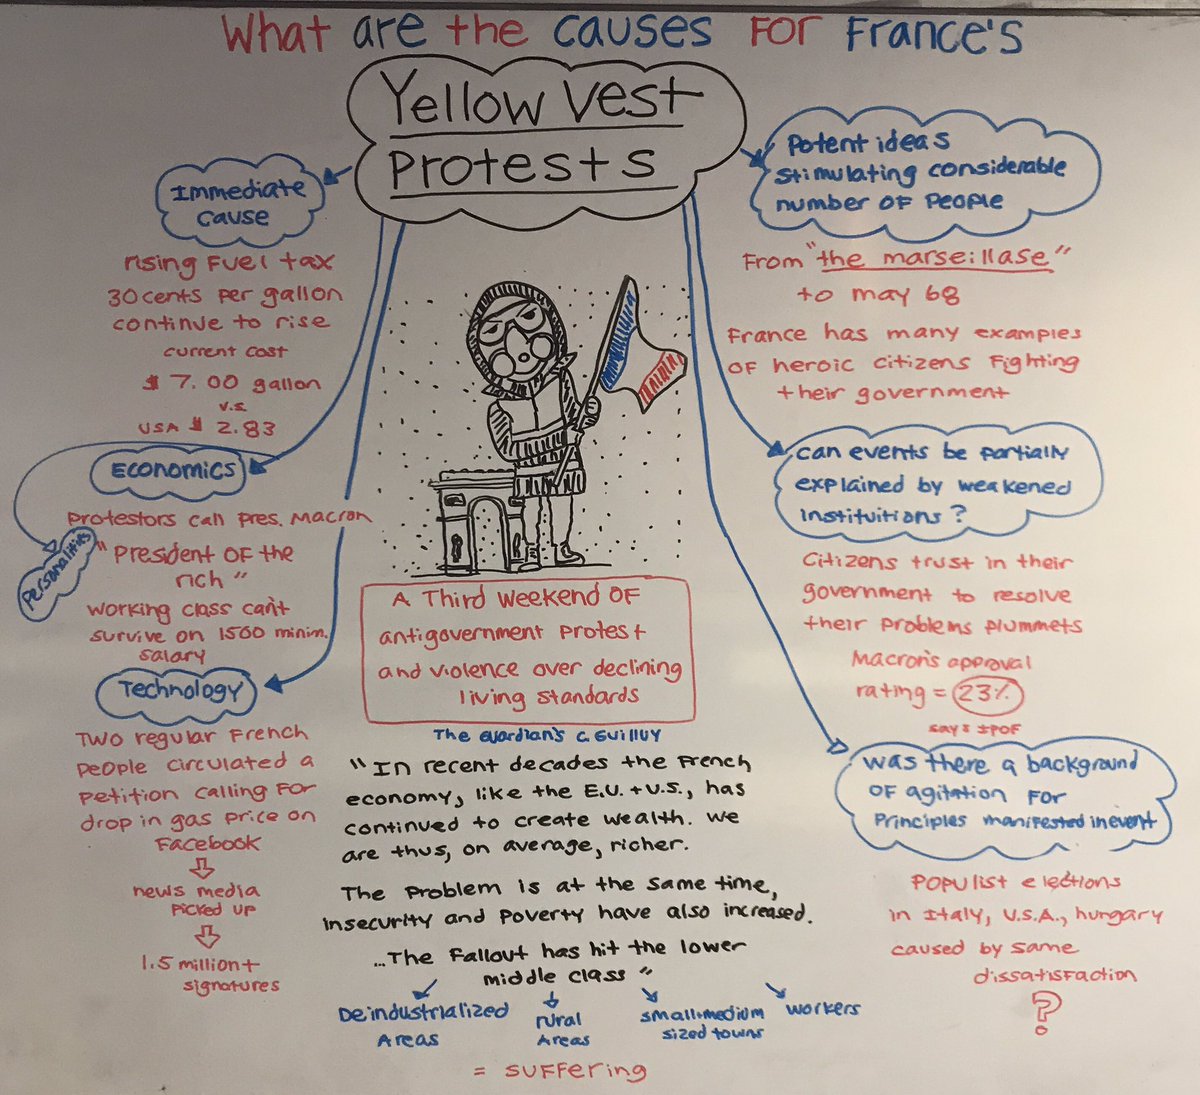 What are the Causes For France's
Yellow Vest
Protests
Immediate
Cause
rising Fuel tax
30 cents per gallon
continue to rise
current cost
$ 7.00 gallon
v.s.
USA $ 2.83
Economics
Protestors call Pres. Macron
Personalities
"President of the
rich"
working class can't
survive on 1500 minim.
salary
Technology
Two regular French
people circulated a
petition calling for
drop in gas price on
Facebook
news media
picked up
1.5 million+
signatures
A Third weekend of
antigovernment protest
and violence over declining
living standards
The Guardian's C. Guilluy
"In recent decades the French
economy, like the E.U. + U.S., has
continued to create wealth. We
are thus, on average, richer.
The problem is at the same time,
insecurity and poverty have also increased.
...The fallout has hit the lower
middle class"
Deindustrialized
Areas
rural
Areas
small-medium
sized towns
workers
= suffering
Potent ideas
stimulating considerable
number of people
From "the marseillase"
to may 68
France has many examples
of heroic citizens fighting
their government
can events be partially
explained by weakened
instituitions?
Citizens trust in their
government to resolve
their problems plummets
Macron's approval
rating = 23%
says IPOF
was there a background
of agitation for
Principles manifested in event
Populist elections
in Italy, U.S.A., hungary
caused by same
dissatisfaction
?